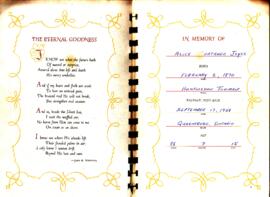 THE ETERNAL GOODNESS
I KNOW not what the future hath
Of marvel or surprise,
Assured alone that life and death
His mercy underlies.
And if my heart and flesh are weak
To bear an untried pain,
The bruised reed He will not break,
But strengthen and sustain.
And so, beside the Silent Sea,
I wait the muffled oar;
No harm from Him can come to me
On ocean or on shore.
I know not where His islands lift
Their fronded palms in air;
I only know I cannot drift
Beyond His love and care.
IN MEMORY OF
ALICE JOYCE
BORN
FEBRUARY 2, 1870
PASSED AWAY
SEPTEMBER 17, 1956
ONTARIO
AGE
86 7 15